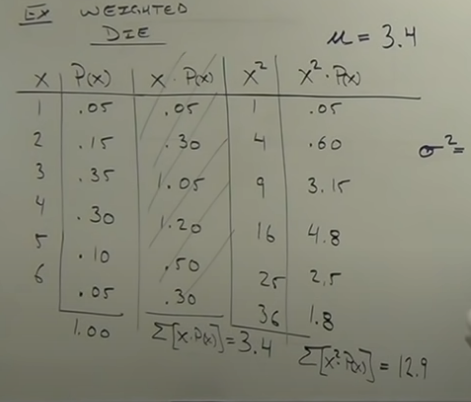 EX WEIGHTED
DIE
μ = 3.4
x P(x) x · P(x) x² x² · P(x)
1 .05 .05 1 .05
2 .15 .30 4 .60
σ² =
3 .35 1.05 9 3.15
4 .30 1.20 16 4.8
5 .10 .50 25 2.5
6 .05 .30 36 1.8
1.00 Σ[x·P(x)] = 3.4 Σ[x²·P(x)] = 12.9